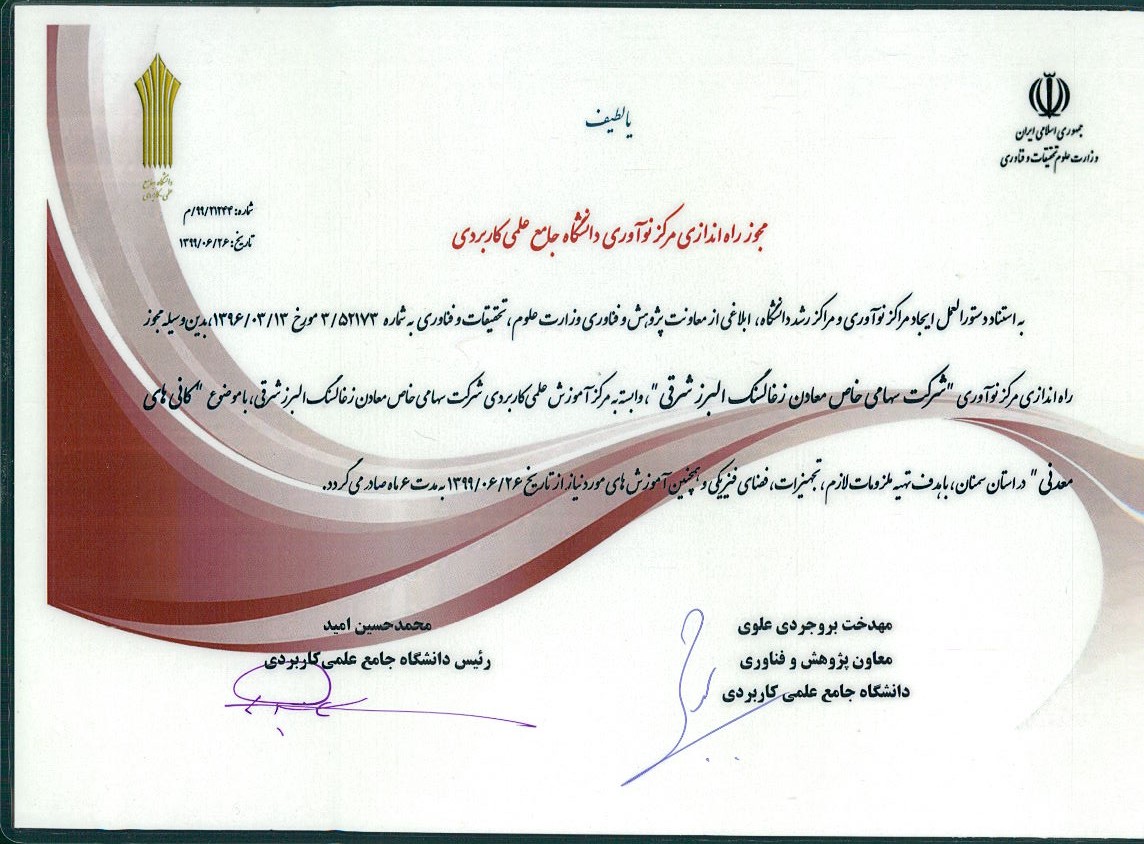 یا لطیف
جمهوری اسلامی ایران
وزارت علوم تحقیقات و فناوری
دانشگاه جامع
علمی کاربردی
شماره: ۹۹/۲۱۲۴۴/م
تاریخ: ۱۳۹۹/۰۶/۲۶
مجوز راه اندازی مرکز نوآوری دانشگاه جامع علمی کاربردی
به استناد دستورالعمل ایجاد مراکز نوآوری و مراکز رشد دانشگاه، ابلاغی از معاونت پژوهش و فناوری وزارت علوم، تحقیقات و فناوری به شماره ۳/۵۲۱۷۳ مورخ ۱۳۹۶/۰۳/۱۳، بدین وسیله مجوز
راه اندازی مرکز نوآوری "شرکت سهامی خاص معادن زغالسنگ البرز شرقی"، وابسته به مرکز آموزش علمی کاربردی شرکت سهامی خاص معادن زغالسنگ البرز شرقی، با موضوع "کانی های
معدنی" در استان سمنان، با هدف تهیه ملزومات لازم، تجهیزات، فضای فیزیکی و همچنین آموزش های مورد نیاز از تاریخ ۱۳۹۹/۰۶/۲۶ به مدت ۶ ماه صادر می گردد.
مهدخت بروجردی علوی
معاون پژوهش و فناوری
دانشگاه جامع علمی کاربردی
محمدحسین امید
رئیس دانشگاه جامع علمی کاربردی